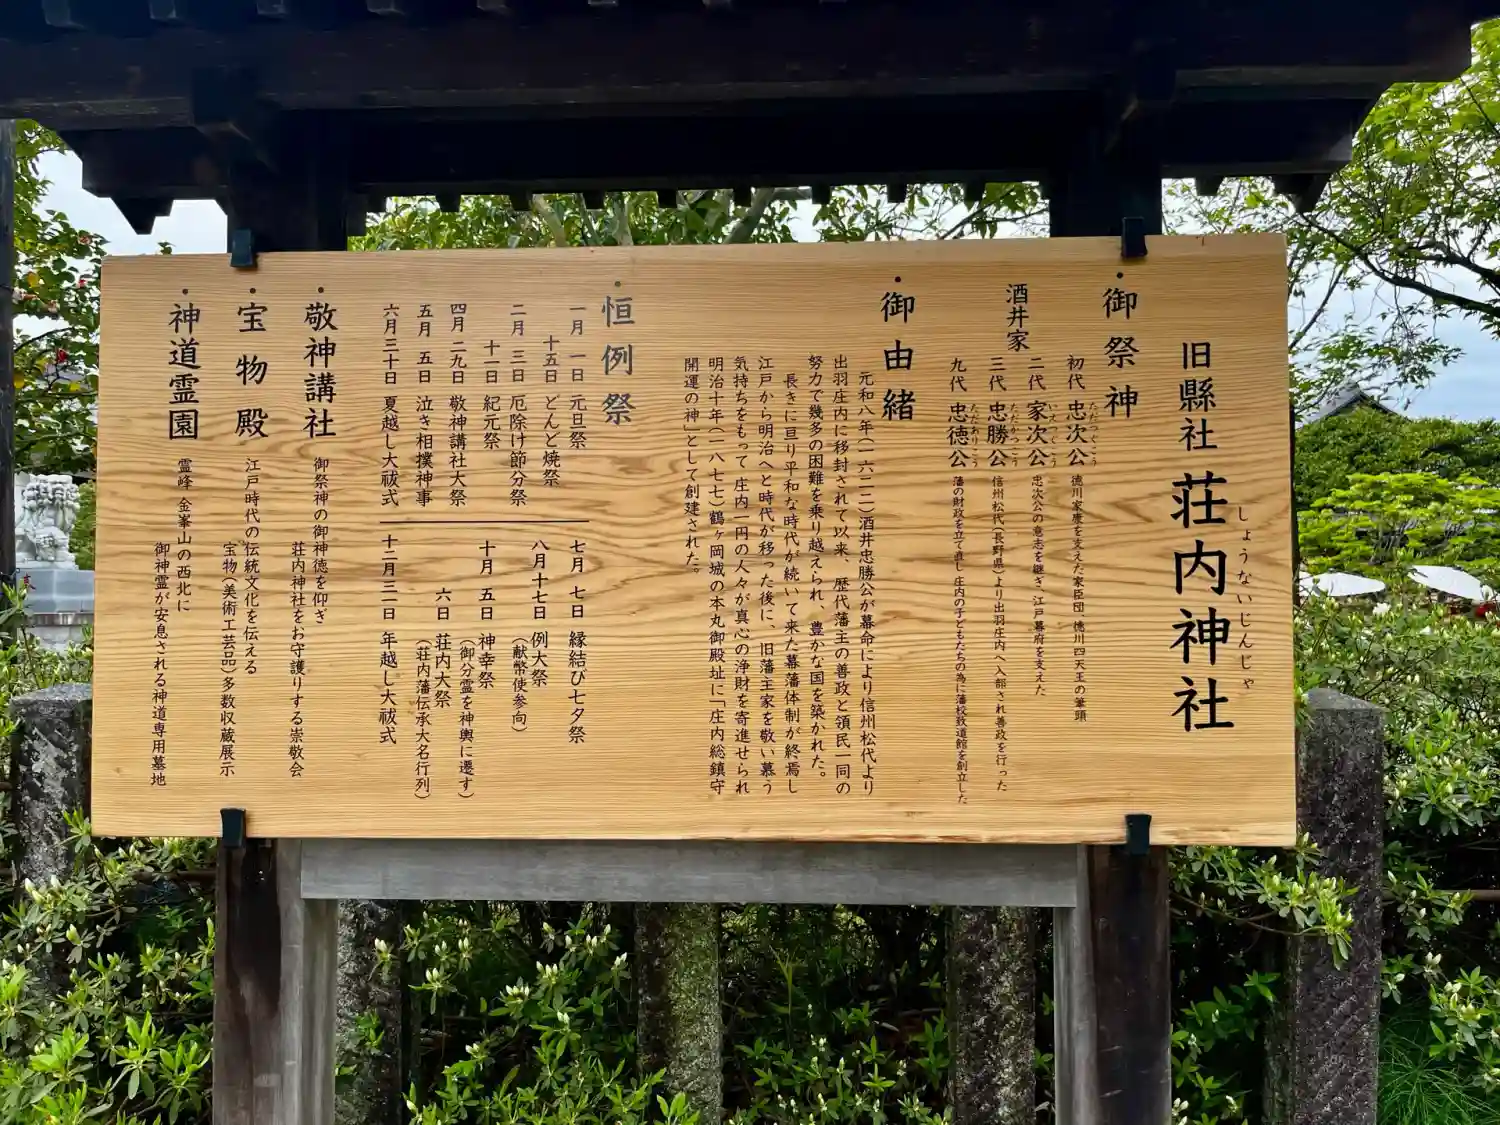 旧縣社 荘内神社
しょうないじんじゃ
・御祭神
酒井家
初代 忠次公 徳川家康を支えた家臣団 徳川四天王の筆頭
ただつぐこう
二代 家次公 忠次公の意志を継ぎ、江戸幕府を支えた
いえつぐこう
三代 忠勝公 信州松代(長野県)より出羽庄内へ入部され善政を行った
ただかつこう
九代 忠徳公 藩の財政を立て直し 庄内の子どもたちの為に藩校致道館を創立した
ただありこう
・御由緒
元和八年(一六二二)酒井忠勝公が幕命により信州松代より
出羽庄内に移封されて以来、歴代藩主の善政と領民一同の
努力で幾多の困難を乗り越えられ、豊かな国を築かれた。
長きに亘り平和な時代が続いて来た幕藩体制が終焉し
江戸から明治へと時代が移った後に、旧藩主家を敬い慕う
気持ちをもって庄内一円の人々が真心の浄財を寄進せられ
明治十年(一八七七)鶴ヶ岡城の本丸御殿址に「庄内総鎮守
開運の神」として創建された。
・恒例祭
一月 一日 元旦祭
十五日 どんど焼祭
二月 三日 厄除け節分祭
十一日 紀元祭
四月 二九日 敬神講社大祭
五月 五日 泣き相撲神事
六月三十日 夏越し大祓式
七月 七日 縁結び七夕祭
八月十七日 例大祭
(献幣使参向)
十月 五日 神幸祭
(御分霊を神輿に遷す)
六日 荘内大祭
(荘内藩伝承大名行列)
十二月三一日 年越し大祓式
・敬神講社
御祭神の御神徳を仰ぎ
荘内神社をお守護りする崇敬会
・宝物殿
江戸時代の伝統文化を伝える
宝物(美術工芸品)多数収蔵展示
・神道霊園
霊峰 金峯山の西北に
御神霊が安息される神道専用墓地